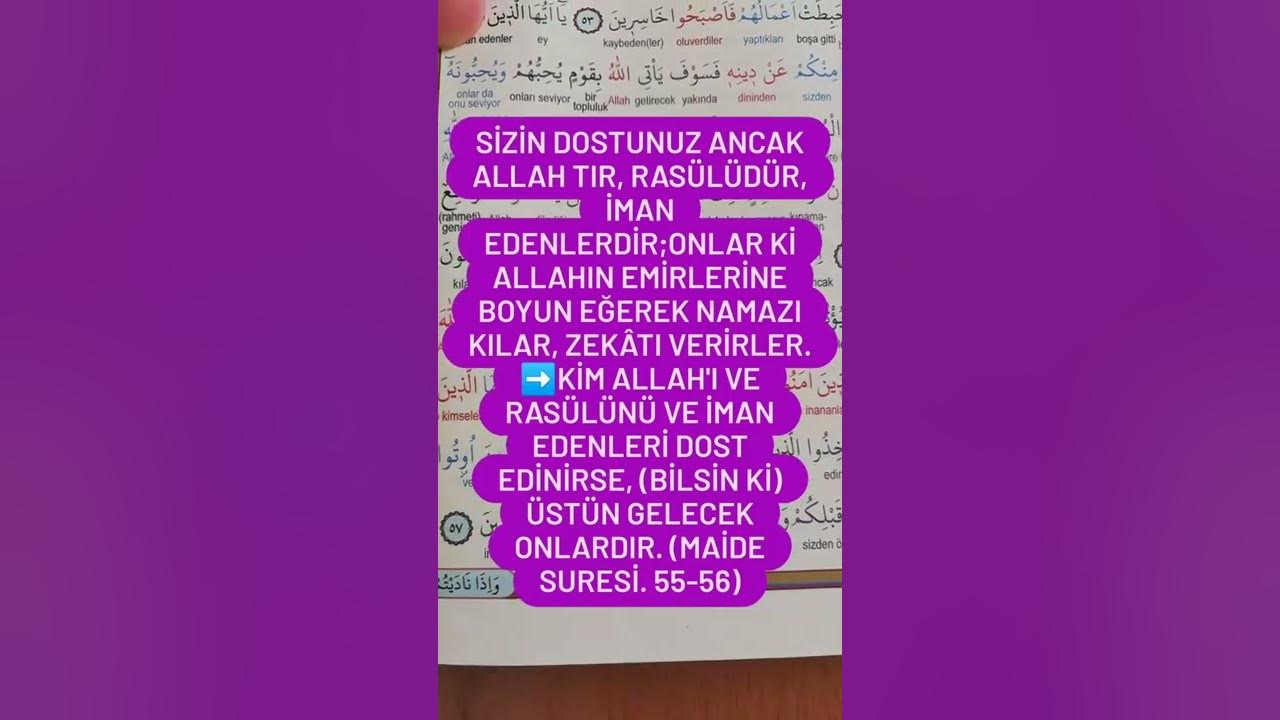 حَبِطَتْ اَعْمَالُهُمْ فَاَصْبَحُوا خَاسِر۪ينَ ٥٣ يَٓا اَيُّهَا الَّذ۪ينَ
edenler ey kaybeden(ler) oluverdiler yaptıkları boşa gitti
مِنْكُمْ عَنْ د۪ينِه۪ فَسَوْفَ يَأْتِي اللّٰهُ بِقَوْمٍ يُحِبُّهُمْ وَيُحِبُّونَهُٓ
onlar da onu seviyor onları seviyor bir topluluk Allah getirecek yakında dininden sizden
SİZİN DOSTUNUZ ANCAK
ALLAH TIR, RASÜLÜDÜR,
İMAN
EDENLERDİR;ONLAR Kİ
ALLAHIN EMİRLERİNE
BOYUN EĞEREK NAMAZI
KILAR, ZEKÂTI VERİRLER.
➡️KİM ALLAH'I VE
RASÜLÜNÜ VE İMAN
EDENLERİ DOST
EDİNİRSE, (BİLSİN Kİ)
ÜSTÜN GELECEK
ONLARDIR. (MAİDE
SURESİ. 55-56)
(rahmeti)
اُو۫تُوا
قَبْلِكُمْ
٥٧
sizden
وَاِذَا نَادَيْتُمْ